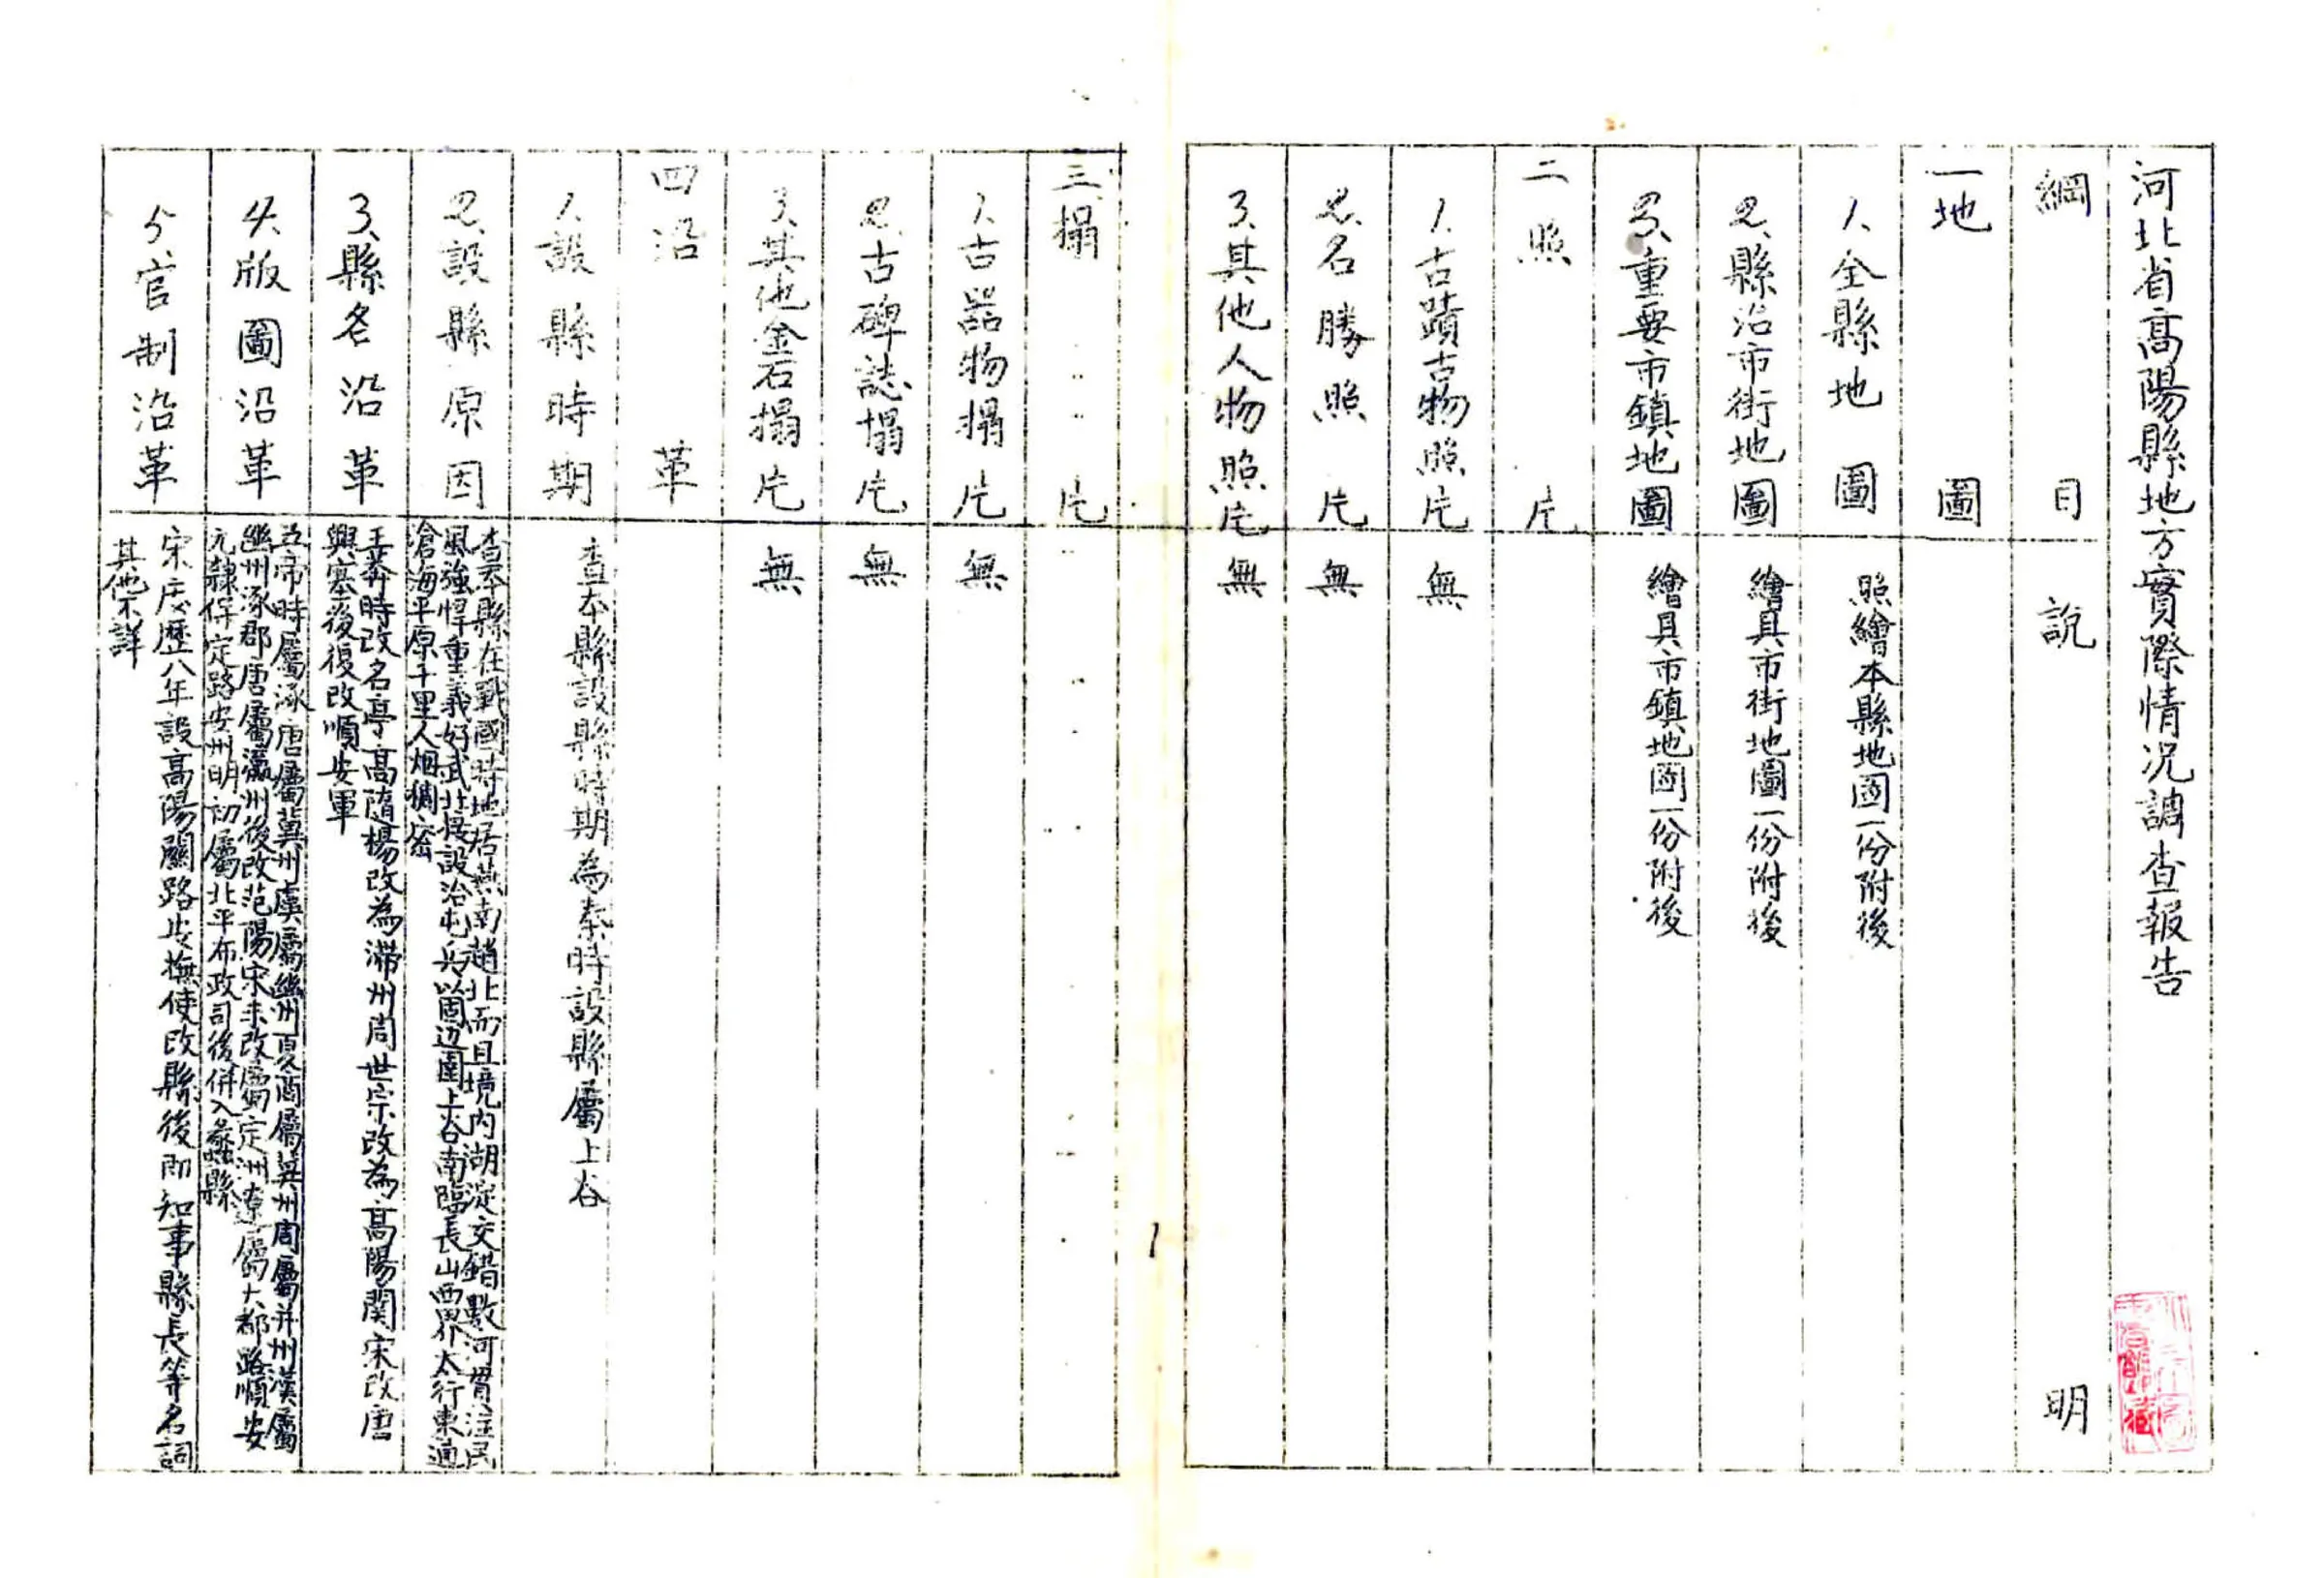 河北省高陽縣地方實際情况調查報告
綱目 說明
一地圖
1、全縣地圖 照繪本縣地圖一份附後
2、縣治市街地圖 繪具市街地圖一份附後
3、重要市鎮地圖 繪具市鎮地圖一份附後
二照片
1、古蹟古物照片 無
2、名勝照片 無
3、其他人物照片 無
1
三搨片
1、古器物搨片 無
2、古碑誌搨片 無
3、其他金石搨片 無
四沿革
1、設縣時期 查本縣設縣時期為秦時設縣屬上谷
2、設縣原因 查本縣在戰國時地居燕南趙北而且境内湖淀交錯數河貫注民
風強悍重義好武北撥設治屯兵以固边圉上谷南臨長山西界太行東通
滄海平原千里人烟稠密
3、縣名沿革 王莽時改名亭高隋楊改為滯州周世宗改為高陽関宋改唐
興塞後復改順安軍
4、版圖沿革 五帝時屬涿唐屬冀州虞屬幽州夏商屬冀州周屬并州漢屬
幽州涿郡唐屬瀛州後改范陽宋末改屬定洲遼屬大都路順安
元隸保定路安州明初屬北平布政司後併入蠡縣
5、官制沿革 宋庆歷八年設高陽關路安撫使改縣後即知事縣長等名詞
其他不詳